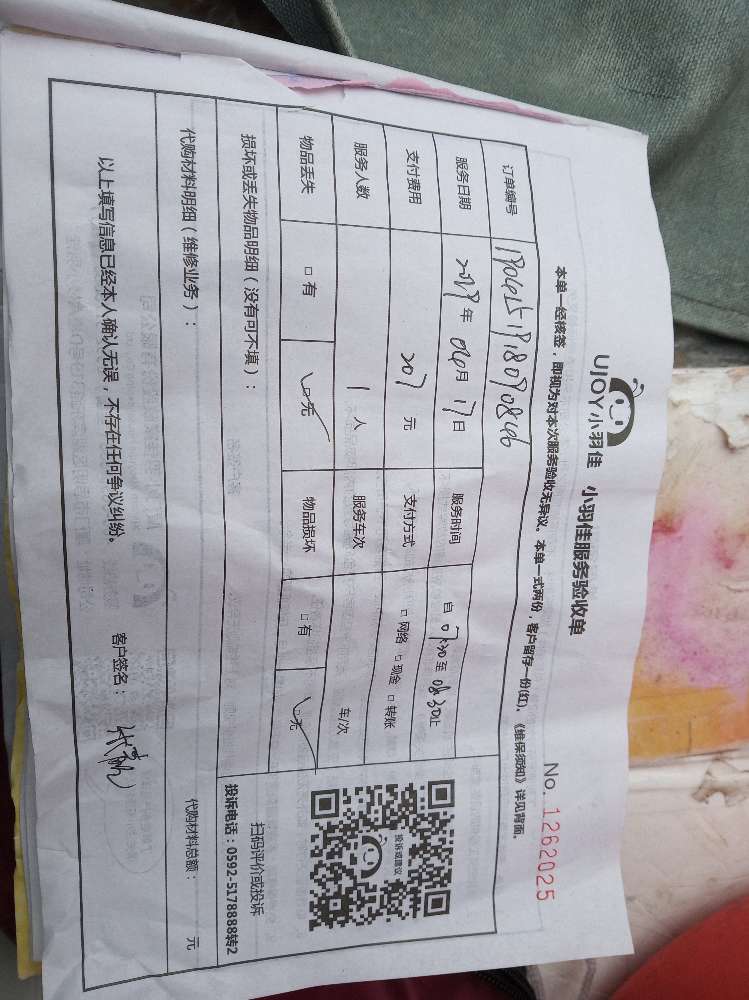 UJOY小羽佳 小羽佳服务验收单
No. 1262025
本单一经核签，即视为对本次服务验收无异议。本单一式两份，客户留存一份(红)，《维保须知》详见背面。
订单编号
服务日期 2019年04月17日 服务时间 自07:30至08:30止
支付费用 207元 支付方式 □网络 □现金 □转账
服务人数 1人 服务车次 车/次
物品丢失 □有 □无 物品损坏 □有 □无
损坏或丢失物品明细（没有可不填）：
投诉或建议
扫码评价或投诉
投诉电话：0592-5178888转2
代购材料明细（维修业务）： 代购材料总额： 元
以上填写信息已经本人确认无误，不存在任何争议纠纷。 客户签名：